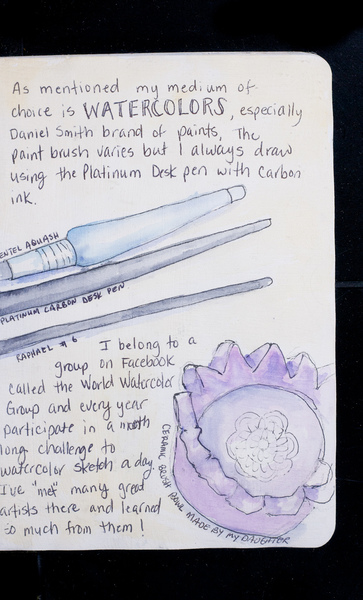 As mentioned my medium of
choice is WATERCOLORS, especially
Daniel Smith brand of paints. The
paint brush varies but I always draw
using the Platinum Desk pen with Carbon
ink.
ENTEL AQUASH
PLATINUM CARBON DESK PEN
RAPHAEL # 6
I belong to a
group on Facebook
called the World Watercolor
Group and every year
participate in a month
long challenge to
watercolor sketch a day.
I've "met" many great
artists there and learned
so much from them!
CERAMIC BRUSH BOWL MADE BY MY DAUGHTER